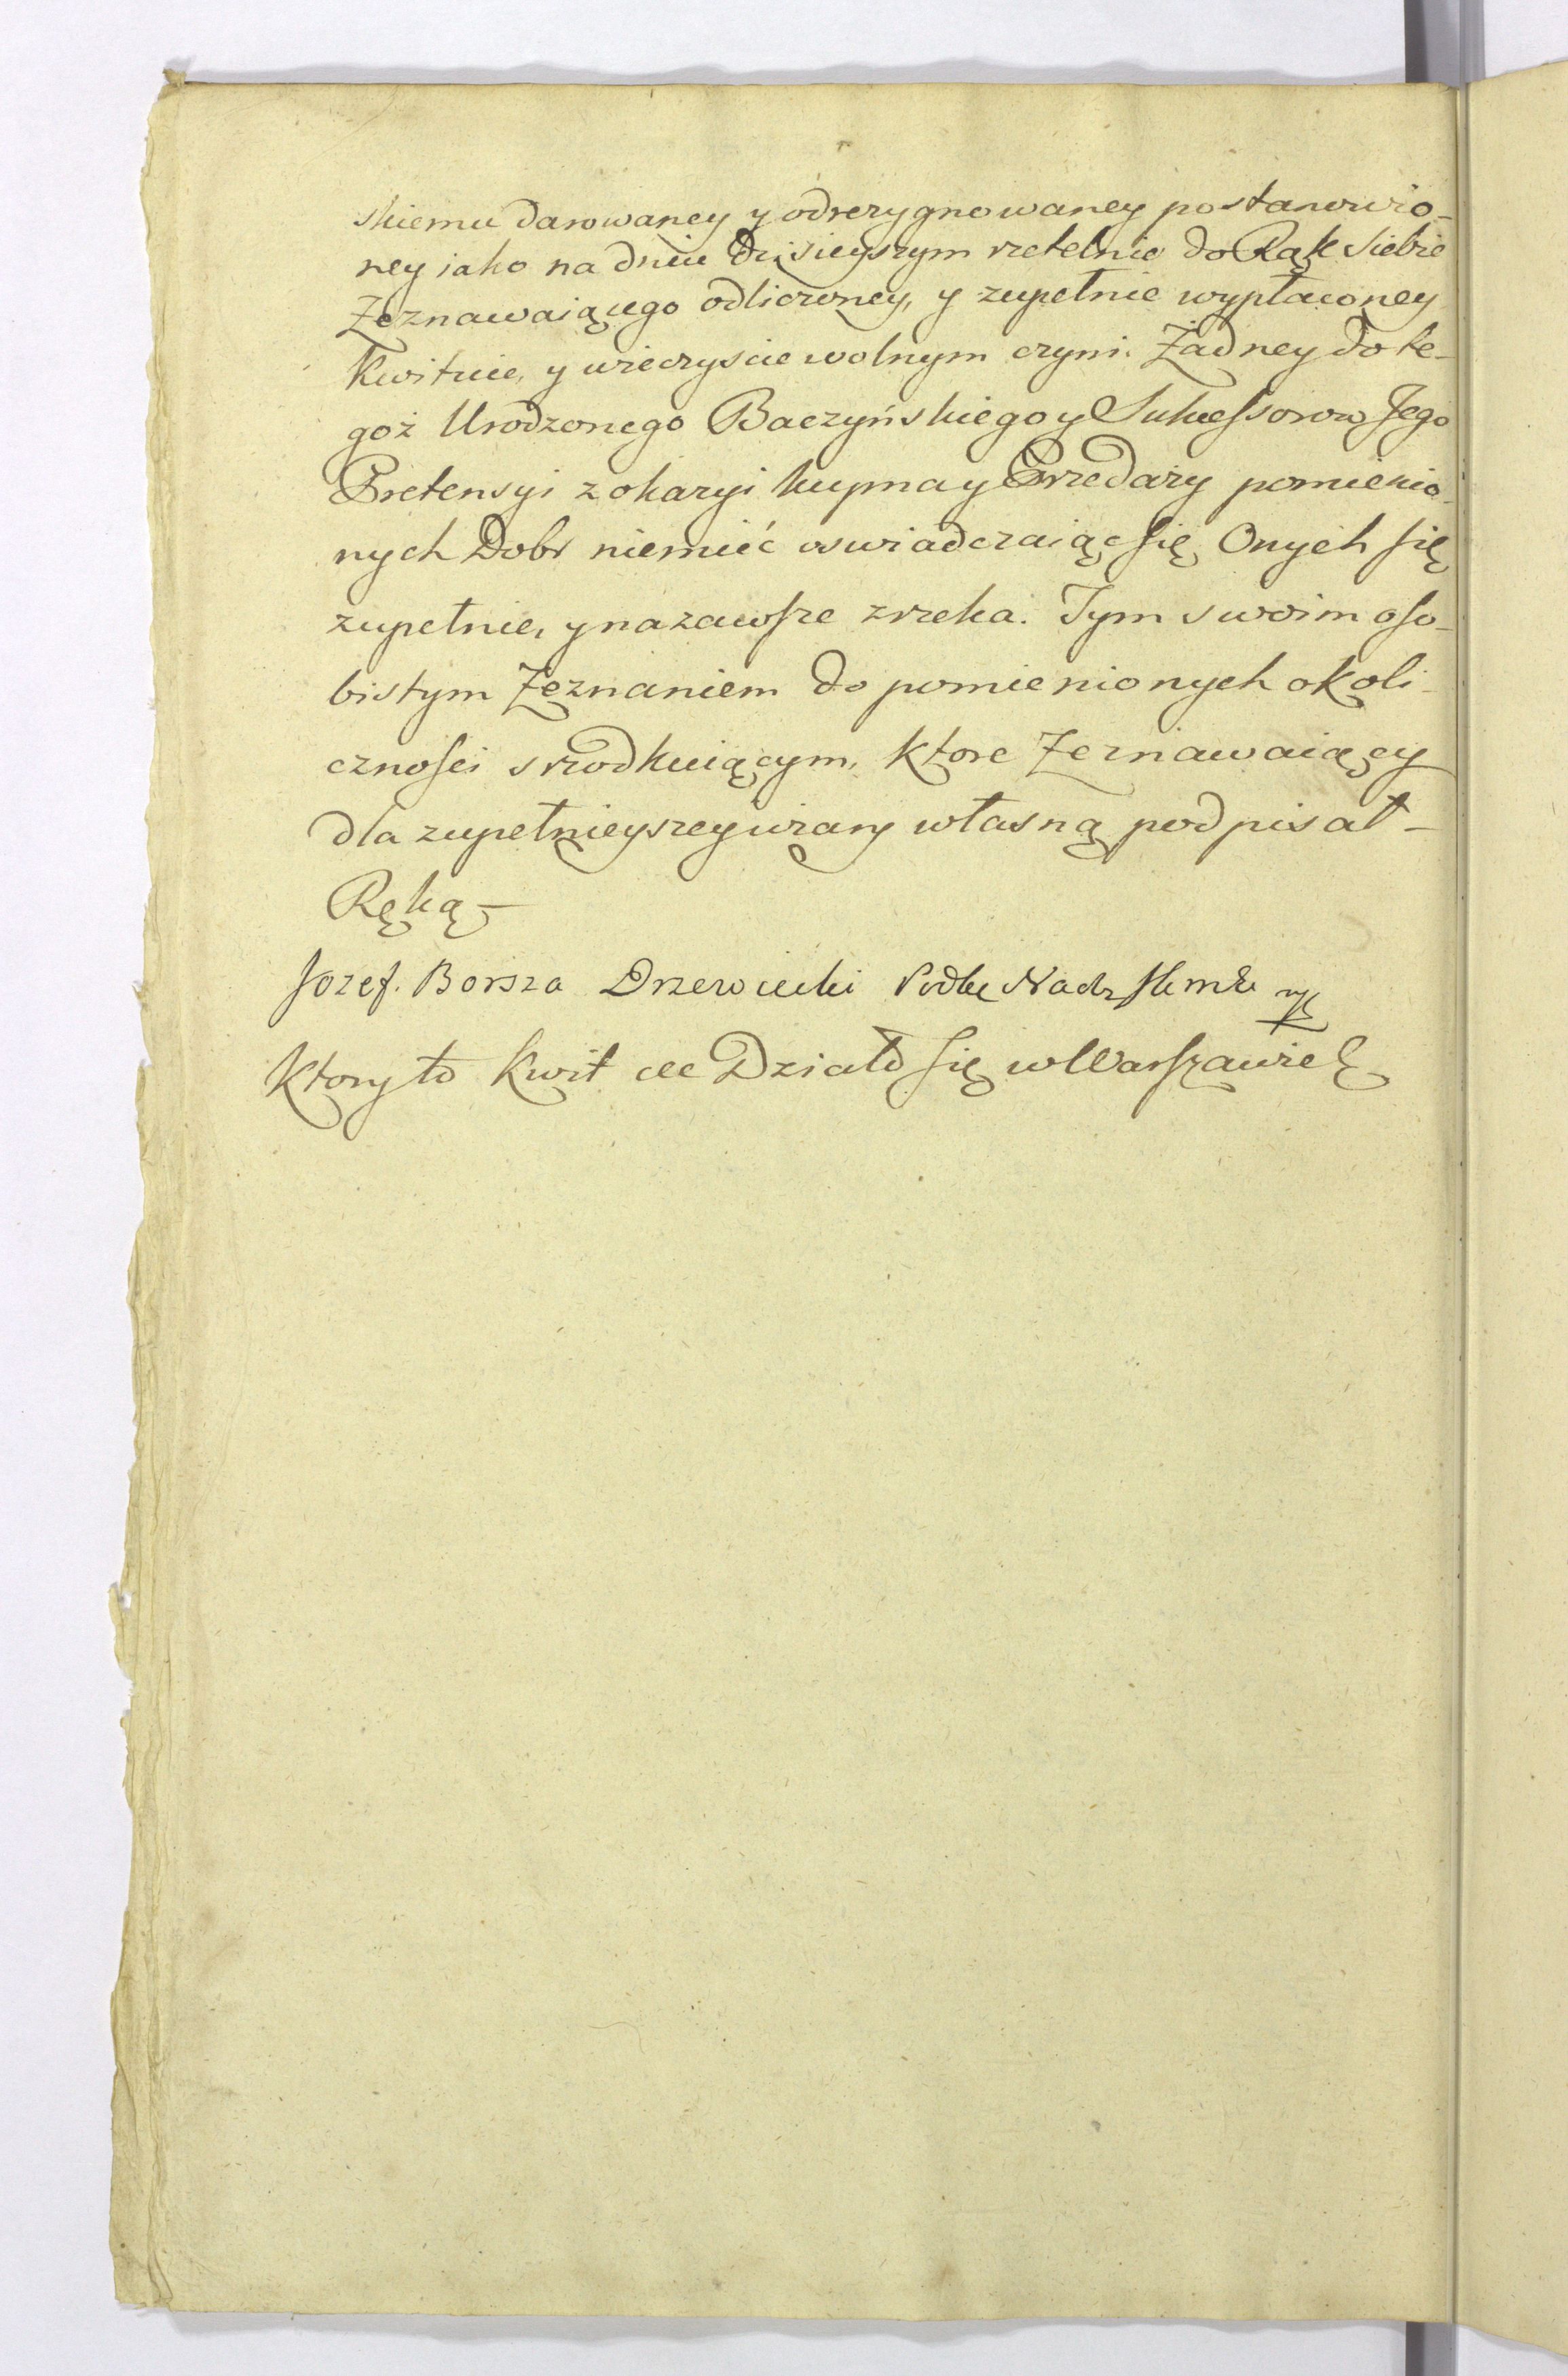 skiemu darowaney y odrezygnowaney postanowio-
ney iako na dniu dzisieyszym rzetelnie do Rąk siebie
Zeznawaiącego odliczoney, y zupełnie wypłaconey
kwituie, y wieczyscie wolnym czyni. Żadney do te-
goż Urodzonego Baczyńskiego y Sukcessorow Jego
Pretensyi z okazyi kupna y Przedaży pomienio-
nych Dobr niemieć oswiadczaiąc się Onych się
zupełnie, y nazawsze zrzeka. Tym swoim oso-
bistym Zeznaniem do pomienionych okoli-
cznosci srzodkuiącym, ktore Zeznawaiący
dla zupełnieyszey wiary własną podpisał -
Ręką -
Jozef. Borsza Drzewiecki
Ktory to kwit etc Działo się w Warszawie